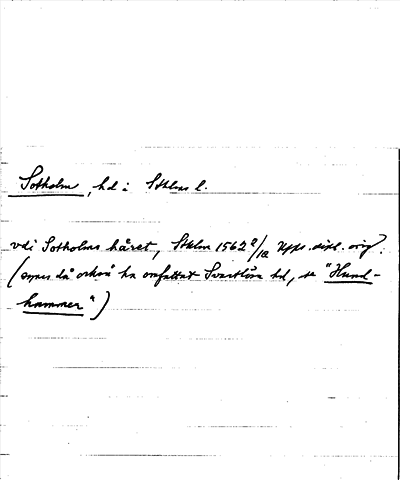 Sotholm, hd i Sthlms l.
vdi Sotholms häret, Sthlm 1562 9/12 Upps. dipl. orig.
(synes då också ha omfattat Svartlösa hd, se "Hund-
hammer")